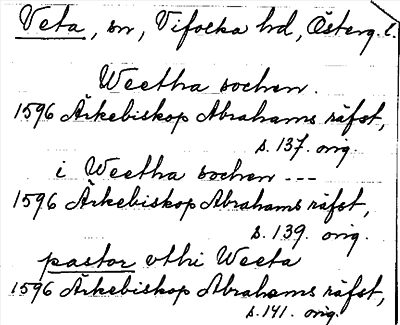 Veta, sn, Vifolka hd, Österg. l.
Weetha sochen.
1596 Ärkebiskop Abrahams räfst,
s. 137. orig.
i Weetha sochen ---
1596 Ärkebiskop Abrahams räfst,
s. 139. orig.
pastor vthi Weeta
1596 Ärkebiskop Abrahams räfst,
s. 141. orig.